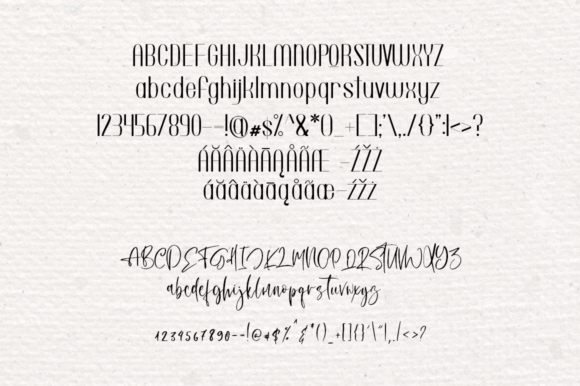 ABCDEFGHIJKLMNOPQRSTUVWXYZ
abcdefghijklmnopqrstuvwxyz
1234567890--!@#$%^&*()_+[];'\,./{}":|<>?
ÁĂÂÄÀĀĄÅÃÆ -ŹŽŻ
áăâäàāąåãæ-źžż
ABCDEFGHIJKLMNOPQRSTUVWXYZ
abcdefghijklmnopqrstuvwxyz
1234567890--!@#$%^&*()_+[]{}'\"|,./<>?